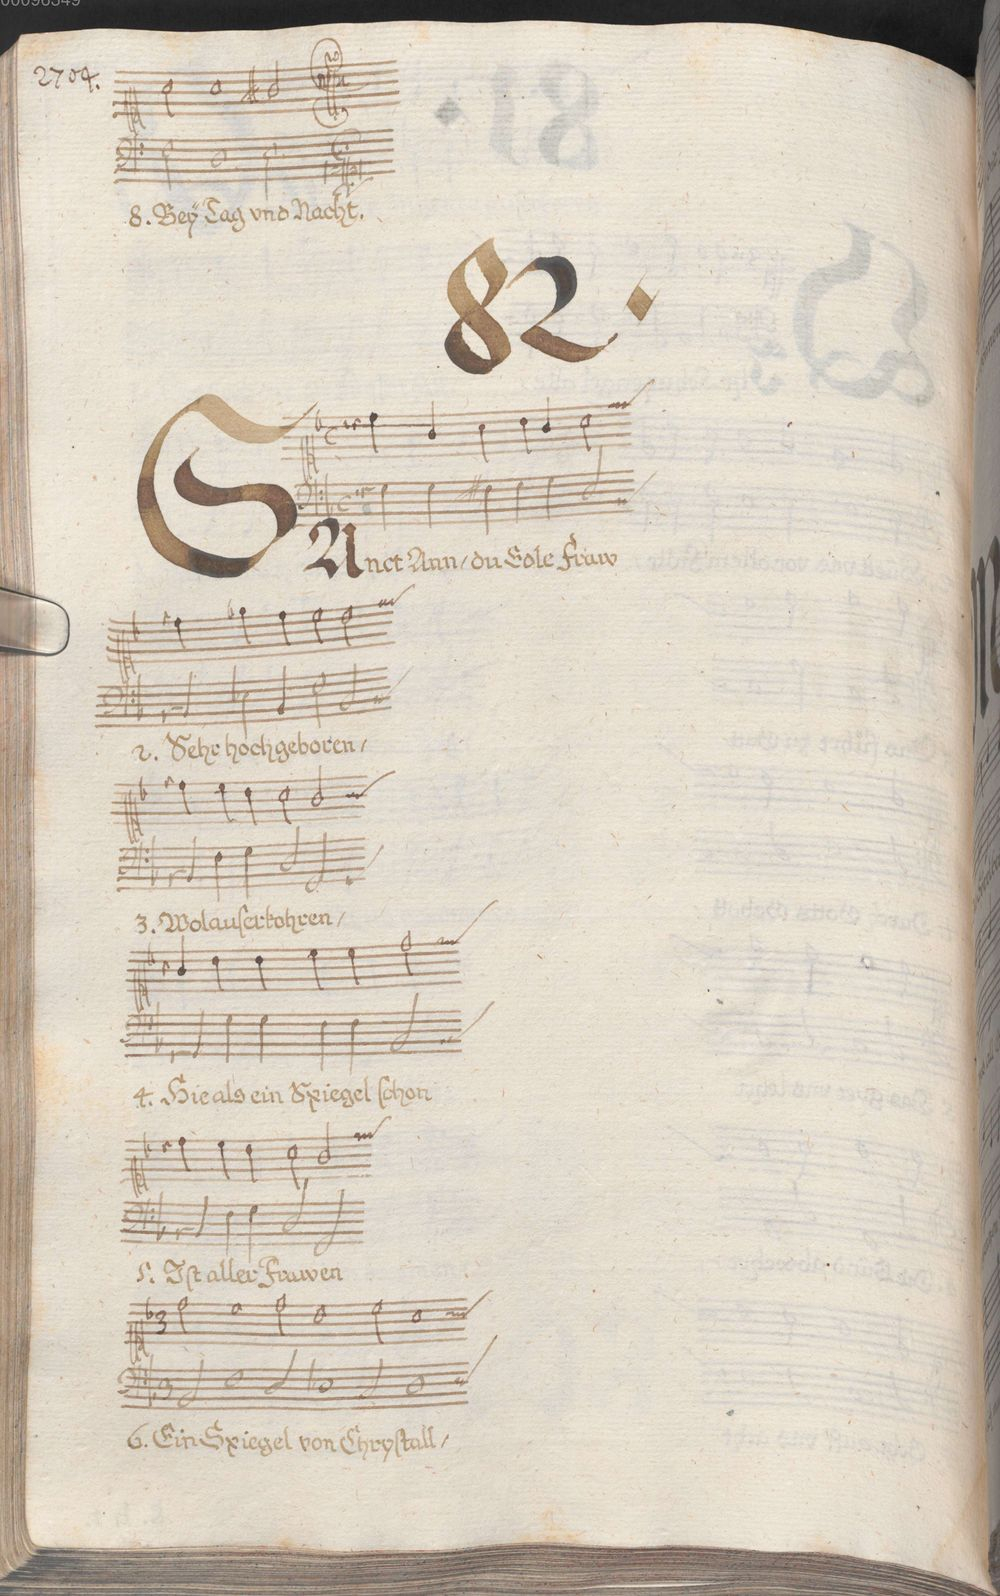 00098349
2704.
8. Beÿ Tag vnd Nacht.
82.
SAnct Ann/ du Edle Fraw
2. Sehr hochgeboren/
3. Wolauserkohren/
4. Hie als ein Spiegel schon
5. Ist aller Frawen
6. Ein Spiegel von Chrystall/